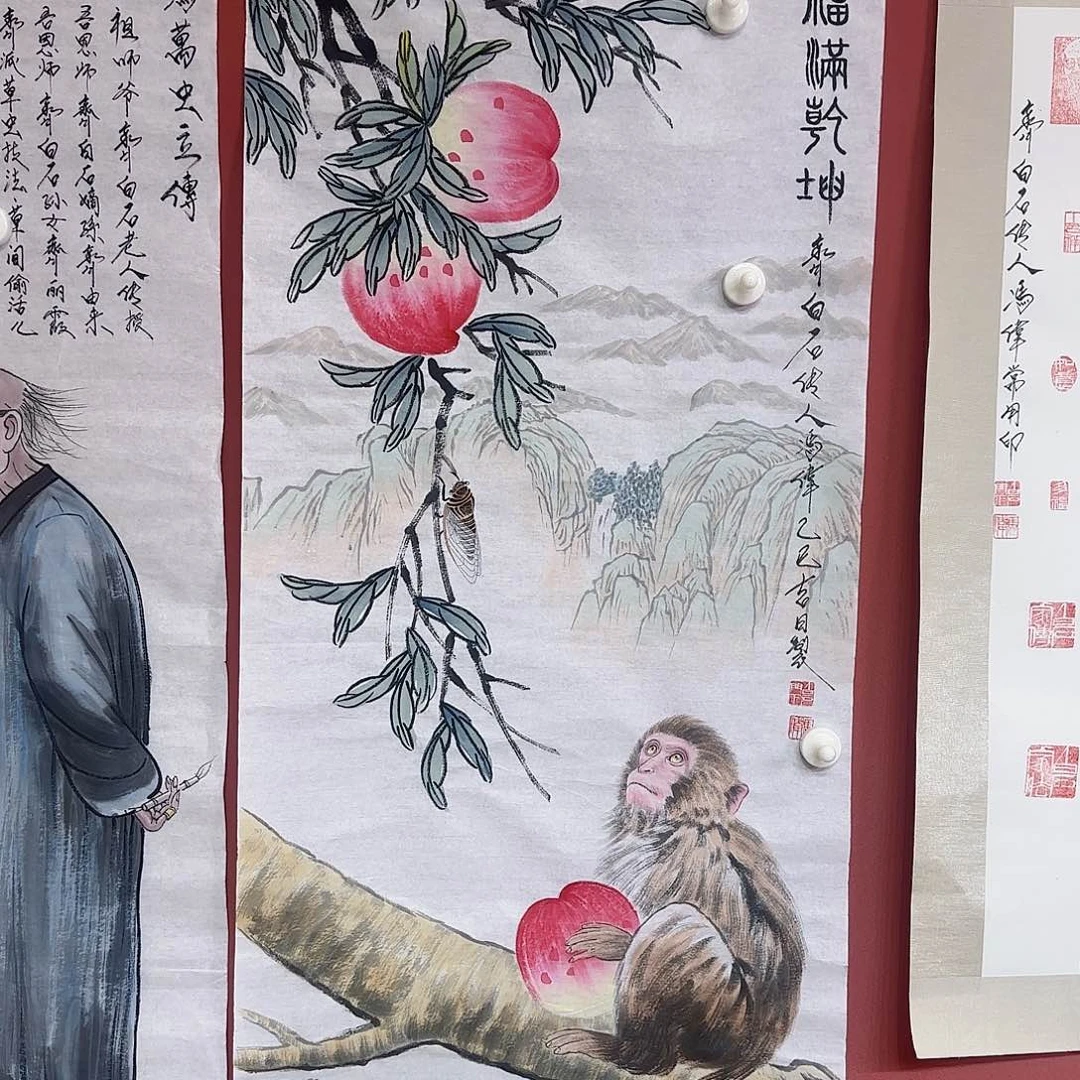 福滿乾坤
齊白石传人馮偉乙巳吉日製
齊白石传人馮偉常用印
為萬虫立傳
祖师爷齊白石老人传授
吾恩师齊白石嫡孫齊由来
吾恩师齊白石孙女齊丽霞
齊派草虫技法草间偷活